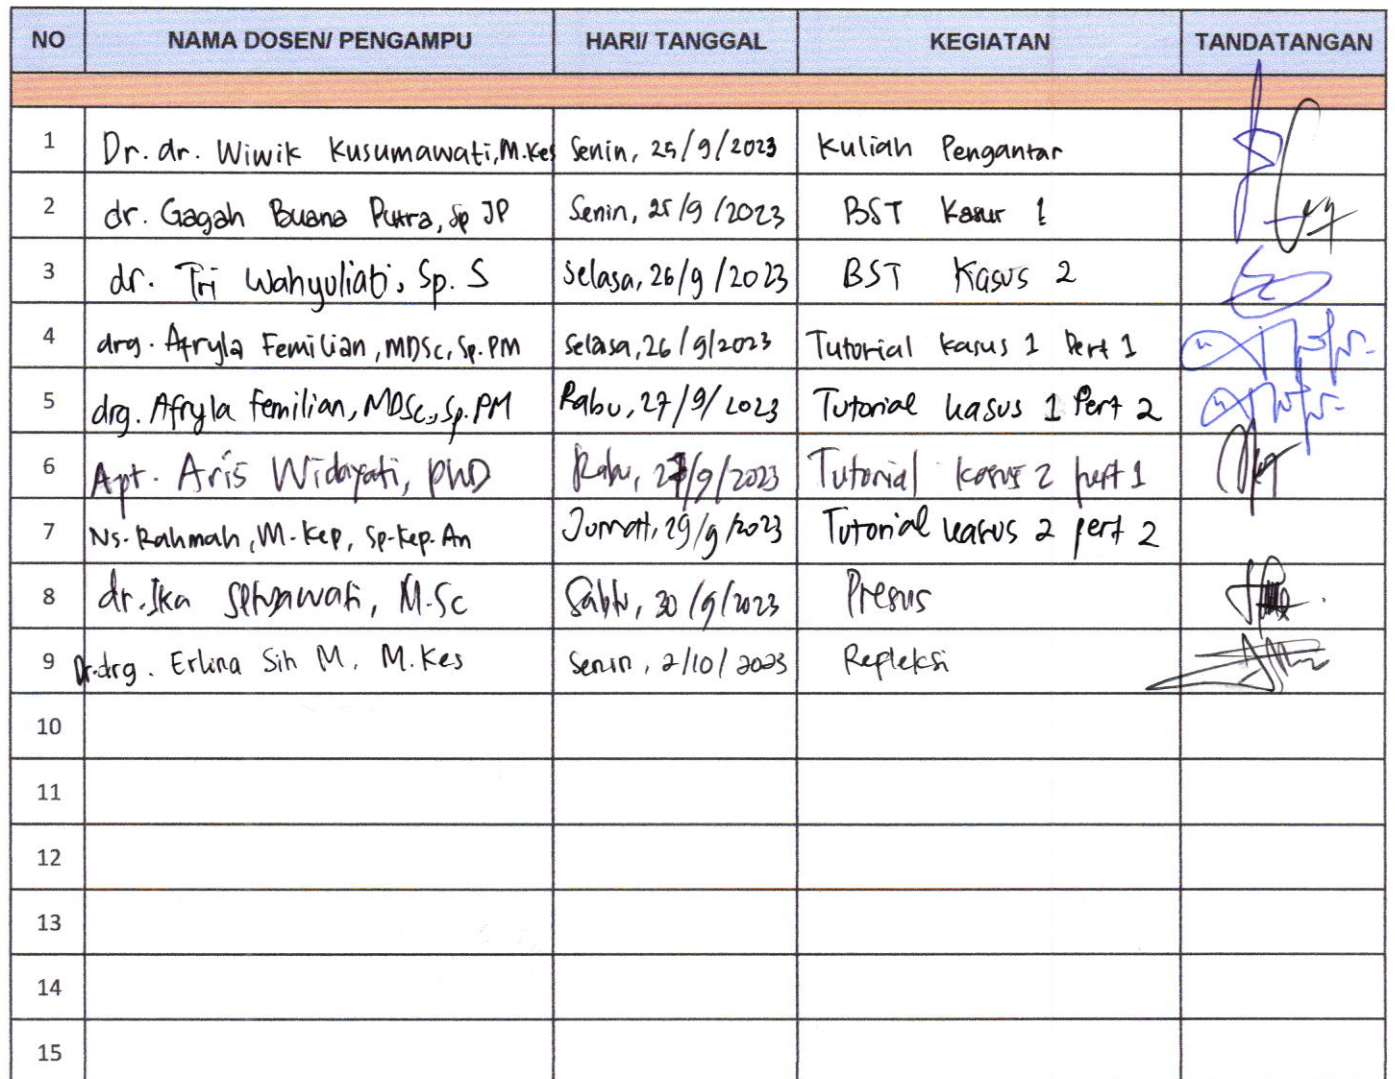 NO NAMA DOSEN/ PENGAMPU HARI/ TANGGAL KEGIATAN TANDATANGAN
1 Dr. dr. Wiwik Kusumawati, M.Kes Senin, 25/9/2023 Kuliah Pengantar
2 dr. Gagah Buana Putra, Sp JP Senin, 25/9/2023 BST Kasus 1
3 dr. Tri Wahyuliati, Sp. S Selasa, 26/9/2023 BST Kasus 2
4 drg. Afryla Femilian, MDSc, Sp. PM Selasa, 26/9/2023 Tutorial kasus 1 Pert 1
5 drg. Afryla Femilian, MDSc, Sp. PM Rabu, 27/9/2023 Tutorial kasus 1 Pert 2
6 Apt. Aris Widayati, PhD Rabu, 27/9/2023 Tutorial kasus 2 pert 1
7 Ns. Rahmah, M. Kep, Sp. Kep. An Jumat, 29/9/2023 Tutorial kasus 2 pert 2
8 dr. Ika Setyawati, M.Sc Sabtu, 30/9/2023 Presus
9 Dr. drg. Erlina Sih M. M.Kes Senin, 2/10/2023 Refleksi
10
11
12
13
14
15